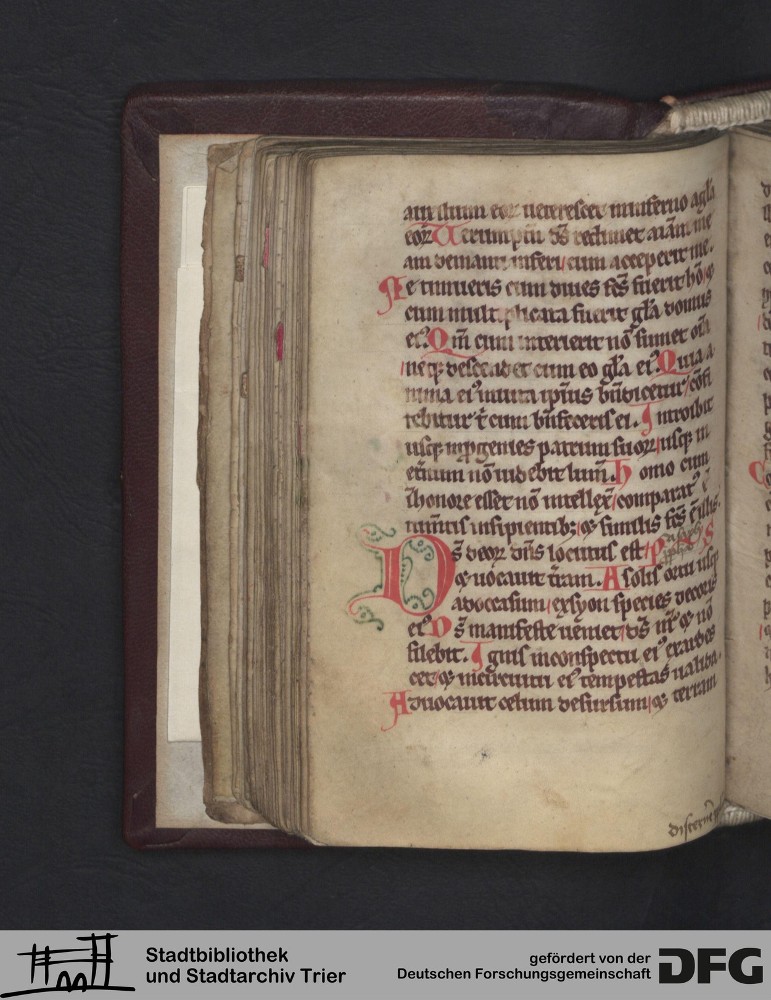 auxilium eoꝝ ueterescet in inferno a gl̄a
eoꝝ Uerumptn̄ ds̄ redimet aīam me
am de manu inferi cum acceperit me.
Ne timueris cum diues fc̄s fuerit hō ⁊
cum multiplicata fuerit gl̄a domus
ei᷒. Qm̄ cum interierit nō sumet om̄ia
neqꝫ descendet cum eo gl̄a ei᷒. Quia a
nima ei᷒ in uita ipīus bn̄dicetur ꝯfi
tebitur t̄ cum bn̄feceris ei. Introibit
usqꝫ in ꝓgenies patrum suoꝝ usqꝫ in
et̄num nō uidebit lum̄. homo cum
in honore esset nō intellex̄ comparat᷒ ē
iumentis insipientibꝫ ⁊ similis fc̄s ē illis.
Ds̄ deoꝝ dn̄s locutus est
⁊ uocauit t̄ram. A solis ortu usqꝫ
ad occasum ex syon species decoris
ei᷒ Ds̄ manifeste ueniet ds̄ nr̄ ⁊ nō
silebit. Ignis in conspectu ei᷒ exardes
cet ⁊ in circuitu ei᷒ tempestas ualida.
Aduocauit celum desursum ⁊ terram
discernē
Stadtbibliothek
und Stadtarchiv Trier
gefördert von der
Deutschen Forschungsgemeinschaft
DFG